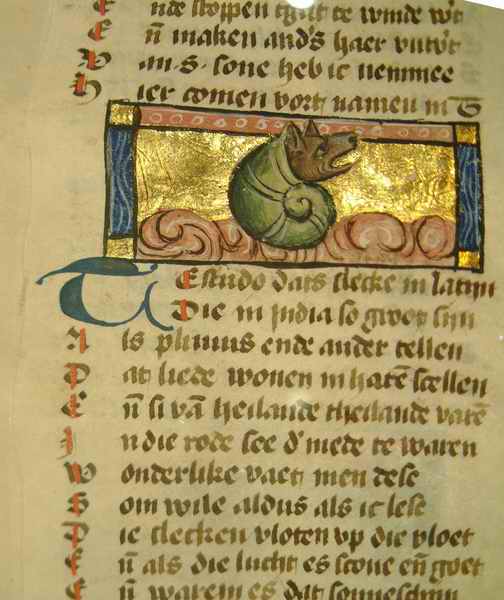 Ende stoppen tgat te winde w't
Eñ maken and's haer
an .S. sone heb ic nemmee
Hier comen vort namen in
Testudo dats slecke in latijn
Die in india so groet sijn
Als plinius ende ander tellen
Dat liede wonen in harē scellen
Eñ si vā heilande theilande varē
In die rode see d' mede te waren
Wonderlike vaet men dese
Som wile aldus als ic lese
Die slecken vloten vp die vloet
Eñ als die lucht es scone eñ goet
Eñ warem es dat sonneschijn